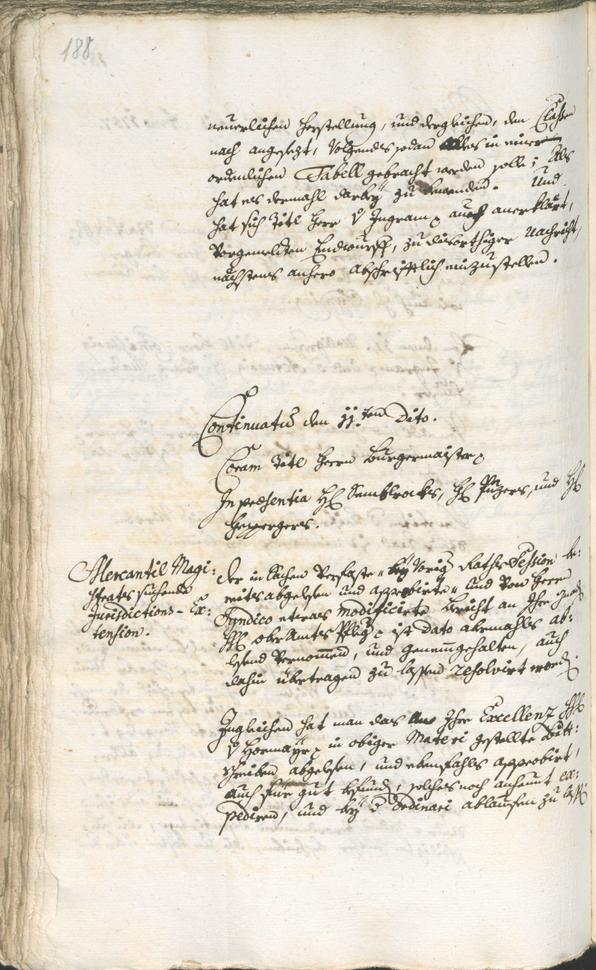 188
neuerlichen Herstellung, und dergleichen, den Classen
nach angesezt, volgends sodan alles in einer
ordenlichen Tabell gebracht werden solle; Als
hat es dermahl darbey zu bewenden. Und
hat sich Titl Herr v Ingram auch anerklärt,
vorgemelten Endwurff, zu disortiger Nachricht,
nächstens anhero abschrifftlich einzustellen.
Continuatum den 11.ten Dito.
Coram Titl Herrn Burgermaister
In praesentia H: Sembrockhs, H: Puzers, und H:
Heppergers.
Mercantil Magi:
strats suchende
Jurisdictions-Ex:
tension.
Der in Sachen verfaste bey vorig Raths Session be:
reits abgelesen und approbierte und von Herrn
Syndico etwas modificierte Bericht an Ihro Gnaden
H: ober Amts Pfleger ist dato abermahls ab:
lesend vernommen, und genemgehalten, auch
dahin übertragen zu lassen resolvirt worden.
Ingleichen hat man das an Ihre Excellenz H:
v Hormayr in obiger Materi gestellte Bitt:
schreiben abgelesen, und ebenfahls approbirt,
auch für gut befunden, solches noch anheunt ex:
pedirend, und bey Ordinari ablauffen zu lassen